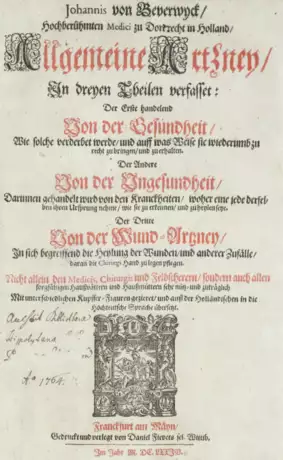 Johannis von Beverwyck/
Hochberühmten Medici zu Dortrecht in Holland/
Allgemeine Artzney/
In dreyen Theilen verfasset:
Der Erste handelend
Von der Gesundheit/
Wie solche verderbet werde/ und auff was Weise sie wiederumb zu
recht zu bringen/ und zu erhalten.
Der Andere
Von der Ungesundheit/
Darinnen gehandelt wird von den Kranckheiten/ woher eine jede dersel-
ben ihren Ursprung nehme/ wie sie zu erkennen/ und zu
Der Dritte
Von der Wund-Artzney/
In sich begreiffend die Heylung der Wunden/ und anderer Zufälle/
darauß die Chirurgi Hand zulegen pflegen.
Nicht allein den Medicis, Chirurgis und Feldscherern/ sondern auch allen
sorgfältigen Haußvättern und Haußmüttern sehr nütz- und zuträglich
Mit unterschiedlichen Kupffer-Figuren gezieret/ und auß der Holländischen in die
Hochteutsche Sprache übersetzt.
Ao 1764.
Franckfurt am Mäyn/
Gedruckt und verlegt von Daniel Fievets sel. Wittib.
Im Jahr M. DC.